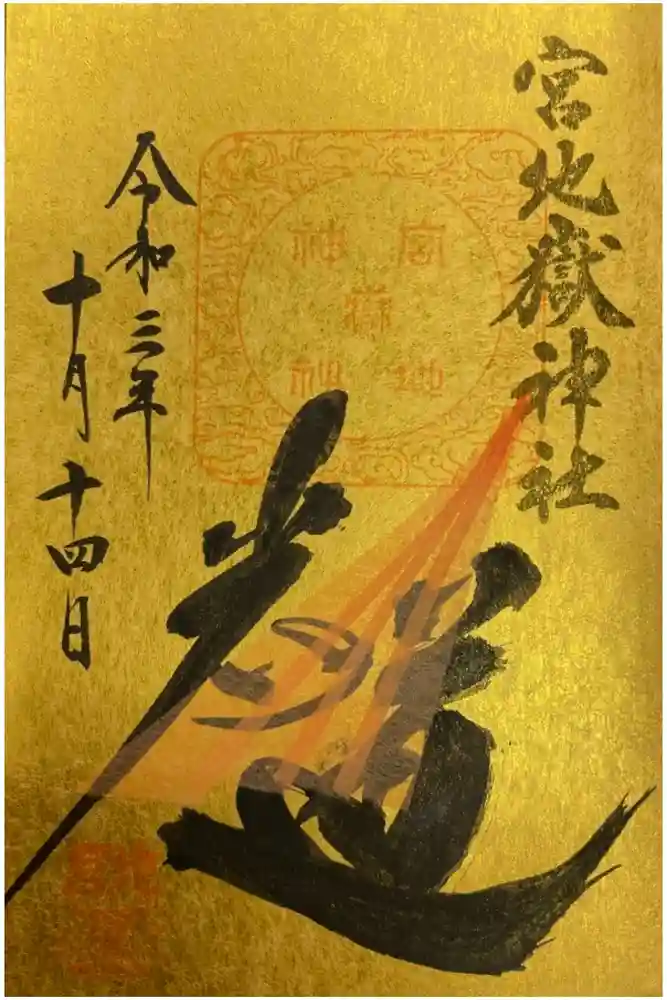 宮地嶽神社
宮地嶽神社
光の道
令和三年
十月十四日